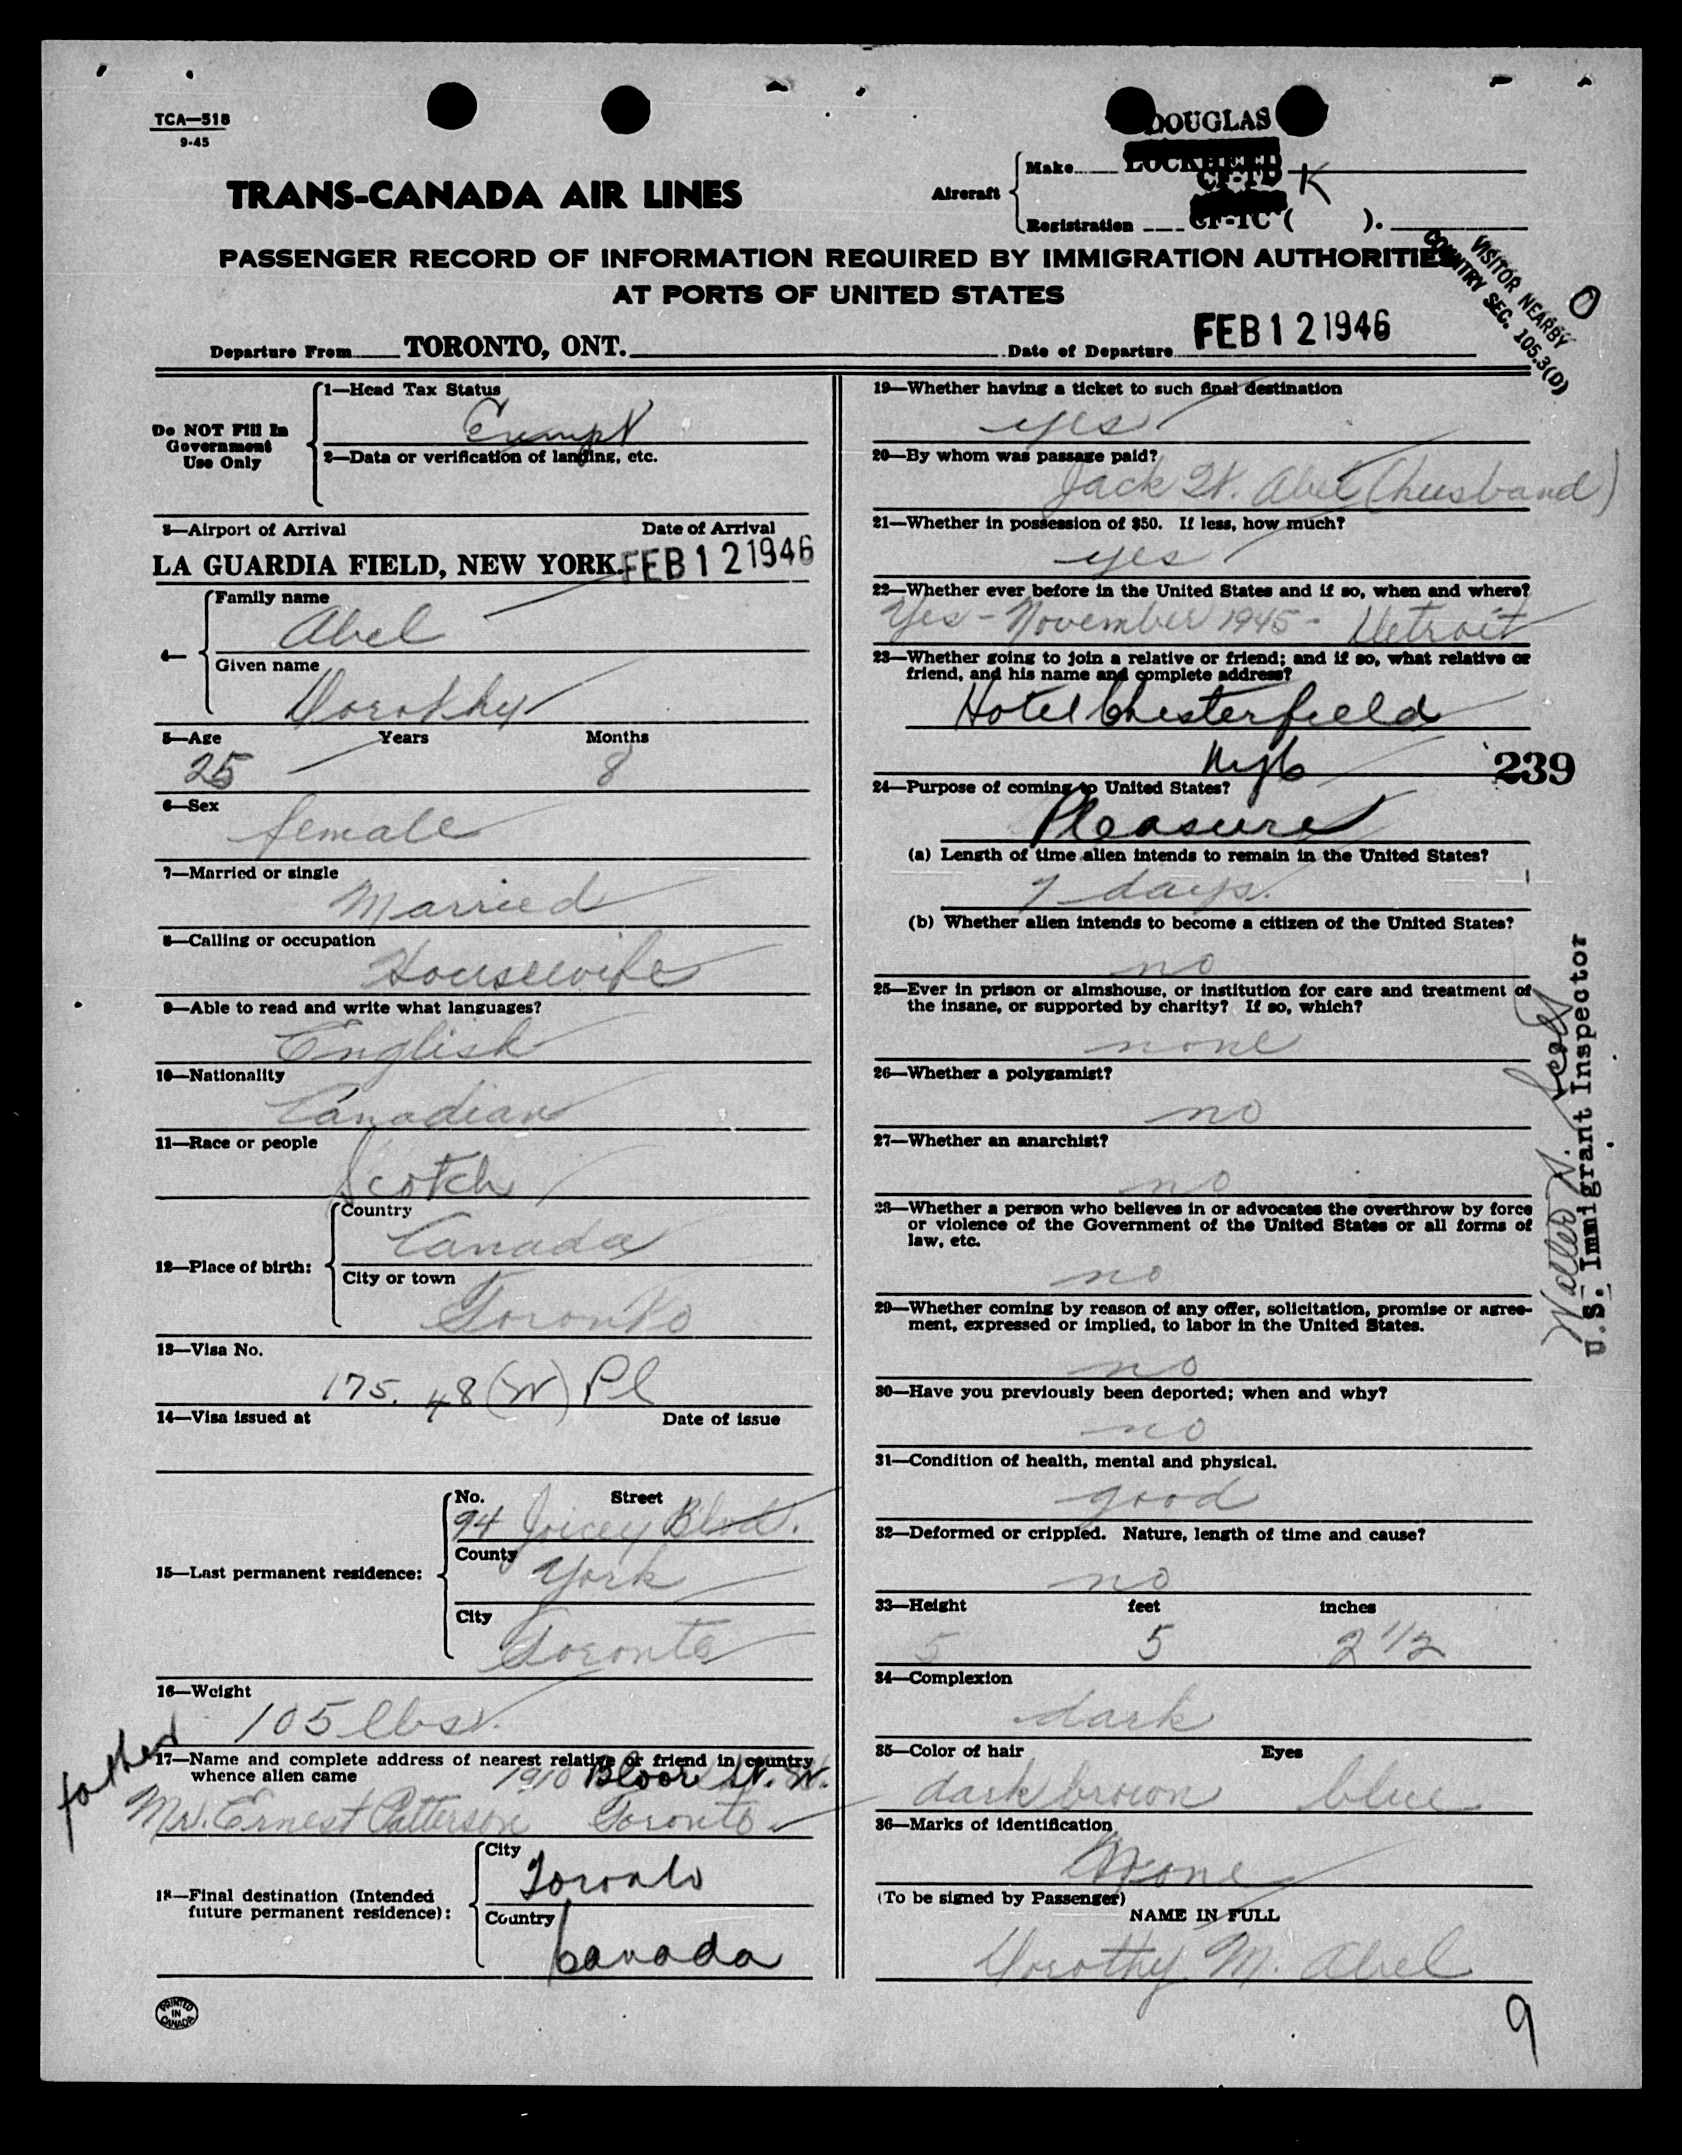 TCA—518
9-45
DOUGLAS
TRANS-CANADA AIR LINES
Aircraft
Make LOCKHEED
CF-TD K
Registration CF-TC ( ).
PASSENGER RECORD OF INFORMATION REQUIRED BY IMMIGRATION AUTHORITIES
AT PORTS OF UNITED STATES
VISITOR NEARBY
COUNTRY SEC. 105.3(D)
O
Departure From TORONTO, ONT. Date of Departure FEB 12 1946
Do NOT Fill In
Government
Use Only
1—Head Tax Status
Exempt
2—Data or verification of landing, etc.
3—Airport of Arrival Date of Arrival
LA GUARDIA FIELD, NEW YORK. FEB 12 1946
4—
Family name
Abel
Given name
Dorothy
5—Age Years Months
25 8
6—Sex
female
7—Married or single
Married
8—Calling or occupation
Housewife
9—Able to read and write what languages?
English
10—Nationality
Canadian
11—Race or people
Scotch
12—Place of birth:
Country
Canada
City or town
Toronto
13—Visa No.
175. 48 (W) Pl
14—Visa issued at Date of issue
15—Last permanent residence:
No. Street
94 Joicey Blvd.
County
York
City
Toronto
16—Weight
105 lbs.
father
17—Name and complete address of nearest relative or friend in country
whence alien came
1910 Bloor St. W.
Mr. Ernest Patterson Toronto
18—Final destination (Intended
future permanent residence):
City
Toronto
Country
Canada
PRINTED
IN
CANADA
19—Whether having a ticket to such final destination
yes
20—By whom was passage paid?
Jack W. Abel (husband)
21—Whether in possession of $50. If less, how much?
yes
22—Whether ever before in the United States and if so, when and where?
Yes - November 1945 - Detroit
23—Whether going to join a relative or friend; and if so, what relative or
friend, and his name and complete address?
Hotel Chesterfield
NYC
239
24—Purpose of coming to United States?
Pleasure
(a) Length of time alien intends to remain in the United States?
7 days.
(b) Whether alien intends to become a citizen of the United States?
no
25—Ever in prison or almshouse, or institution for care and treatment of
the insane, or supported by charity? If so, which?
none
26—Whether a polygamist?
no
27—Whether an anarchist?
no
28—Whether a person who believes in or advocates the overthrow by force
or violence of the Government of the United States or all forms of
law, etc.
no
29—Whether coming by reason of any offer, solicitation, promise or agree-
ment, expressed or implied, to labor in the United States.
no
30—Have you previously been deported; when and why?
no
31—Condition of health, mental and physical.
good
32—Deformed or crippled. Nature, length of time and cause?
no
33—Height feet inches
5 5 2 1/2
34—Complexion
dark
35—Color of hair Eyes
dark brown blue
36—Marks of identification
None
(To be signed by Passenger)
NAME IN FULL
Dorothy M. Abel
Walter N. Scott
U.S. Immigrant Inspector
9